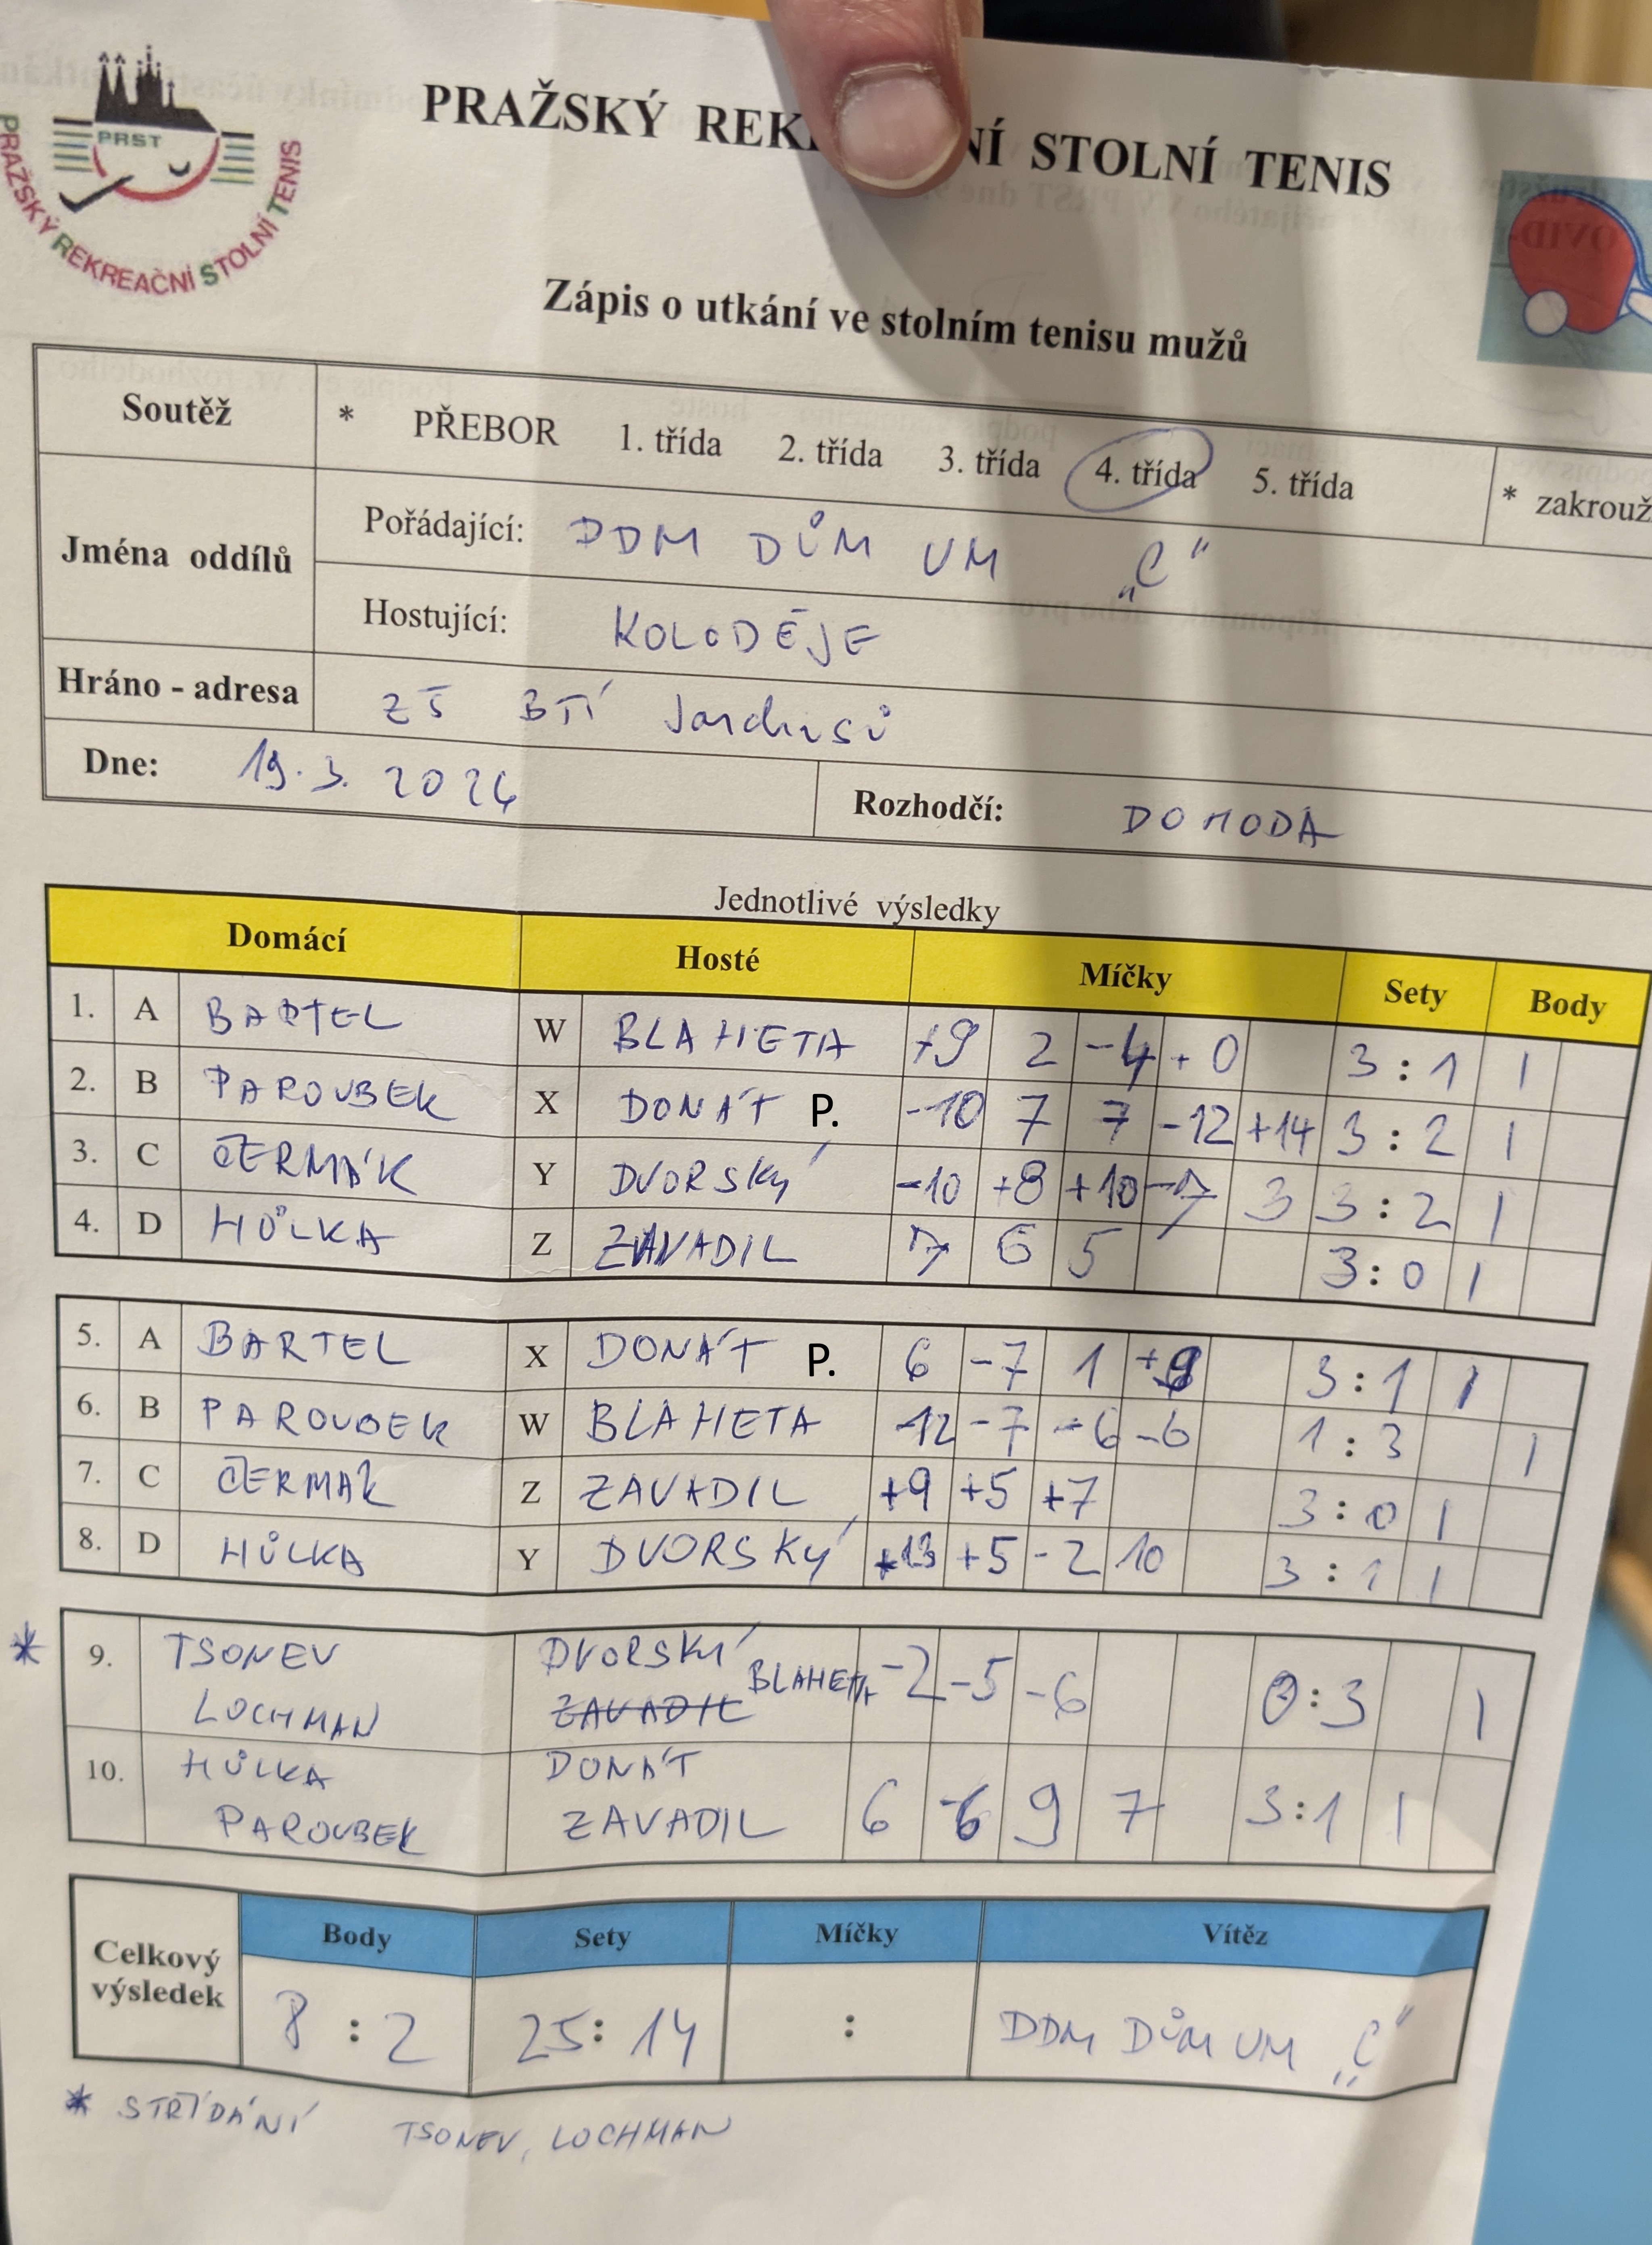 PRST
PRAŽSKÝ REKREAČNÍ STOLNÍ TENIS
PRAŽSKÝ REK NÍ STOLNÍ TENIS
Zápis o utkání ve stolním tenisu mužů
Soutěž * PŘEBOR 1. třída 2. třída 3. třída 4. třída 5. třída * zakrouž
Jména oddílů
Pořádající: DDM DŮM UM „C"
Hostující: KOLODĚJE
Hráno - adresa ZŠ BŤÍ Jandusů
Dne: 19.3. 2024 Rozhodčí: DOMODA
Jednotlivé výsledky
Domácí Hosté Míčky Sety Body
1. A BARTEL W BLAHETA +9 2 -4 +0 3:1 1
2. B PAROUBEK X DONÁT P. -10 7 7 -12 +14 3:2 1
3. C ČERMÁK Y DVORSKÝ -10 +8 +10 -7 3 3:2 1
4. D HŮLKA Z ZAVADIL 7 6 5 3:0 1
5. A BARTEL X DONÁT P. 6 -7 1 +9 3:1 1
6. B PAROUBEK W BLAHETA -12 -7 -6 -6 1:3 1
7. C ČERMÁK Z ZAVADIL +9 +5 +7 3:0 1
8. D HŮLKA Y DVORSKÝ +13 +5 -2 10 3:1 1
* 9. TSONEV DVORSKÍ BLAHETA -2 -5 -6 0:3 1
LOCHMAN ZAVADIL
10. HŮLKA DONÁT
PAROUBEK ZAVADIL 6 -6 9 7 3:1 1
Celkový výsledek
Body Sety Míčky Vítěz
8:2 25:14 : DDM DŮM UM „C"
* STŘÍDÁNÍ TSONEV, LOCHMAN